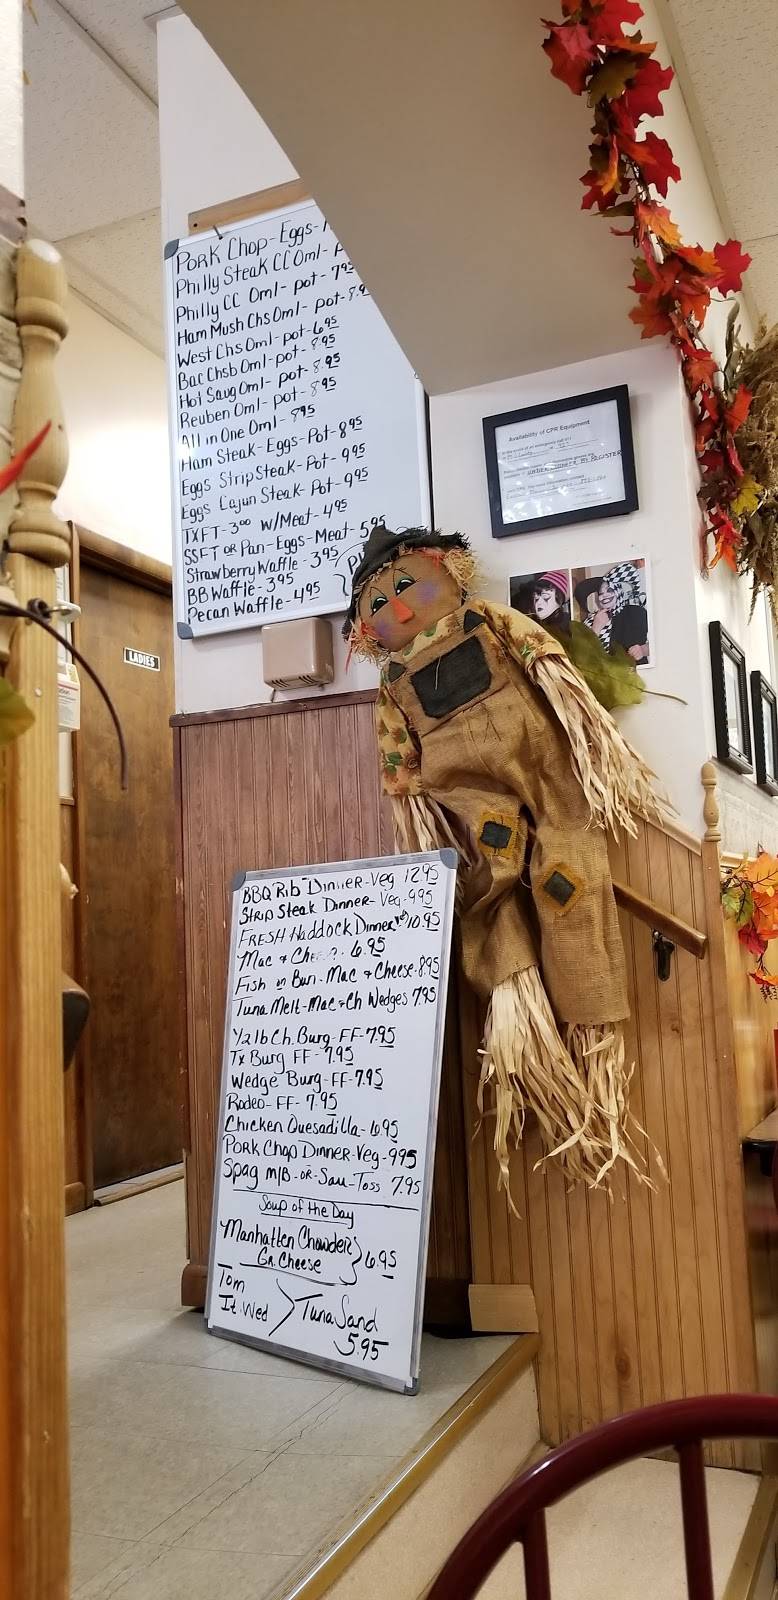 PORK CHOP - Eggs -
Philly Steak CC Oml -
Philly CC Oml - pot - 7.95
Ham Mush Chs Oml - pot - 8.9
West Chs Oml - pot - 6.95
Bac Chsb Oml - pot - 8.95
Hot Saug Oml - pot - 8.95
Reuben Oml - pot - 8.95
All in One Oml - 895
Ham Steak - Eggs - Pot - 895
Eggs Strip Steak - Pot - 995
Eggs Cajun Steak - Pot - 995
TXFT - 3.00 W/Meat - 495
SSFT OR Pan - Eggs - Meat - 595
Strawberry Waffle - 395
BB Waffle - 395
Pecan Waffle - 495
Availability of CPR Equipment
UNDER COUNTER BY REGISTER
LADIES
BBQ Rib Dinner - Veg 12.95
Strip Steak Dinner - Veg - 995
FRESH Haddock Dinner 10.95
Mac & 6.95
Fish on Bun - Mac & Cheese - 8.95
Tuna Melt - Mac & Ch Wedges 7.95
1/2 lb Ch. Burg - FF - 7.95
Tx Burg FF - 7.95
Wedge Burg - FF - 7.95
Rodeo - FF - 7.95
Chicken Quesadilla - 6.95
PORK Chop Dinner - Veg - 995
Spag M/B - OR - Sau - Toss 7.95
Soup of the Day
Manhatten Chowder
Gr. Cheese } 6.95
Tom
It. Wed > Tuna Sand
5.95